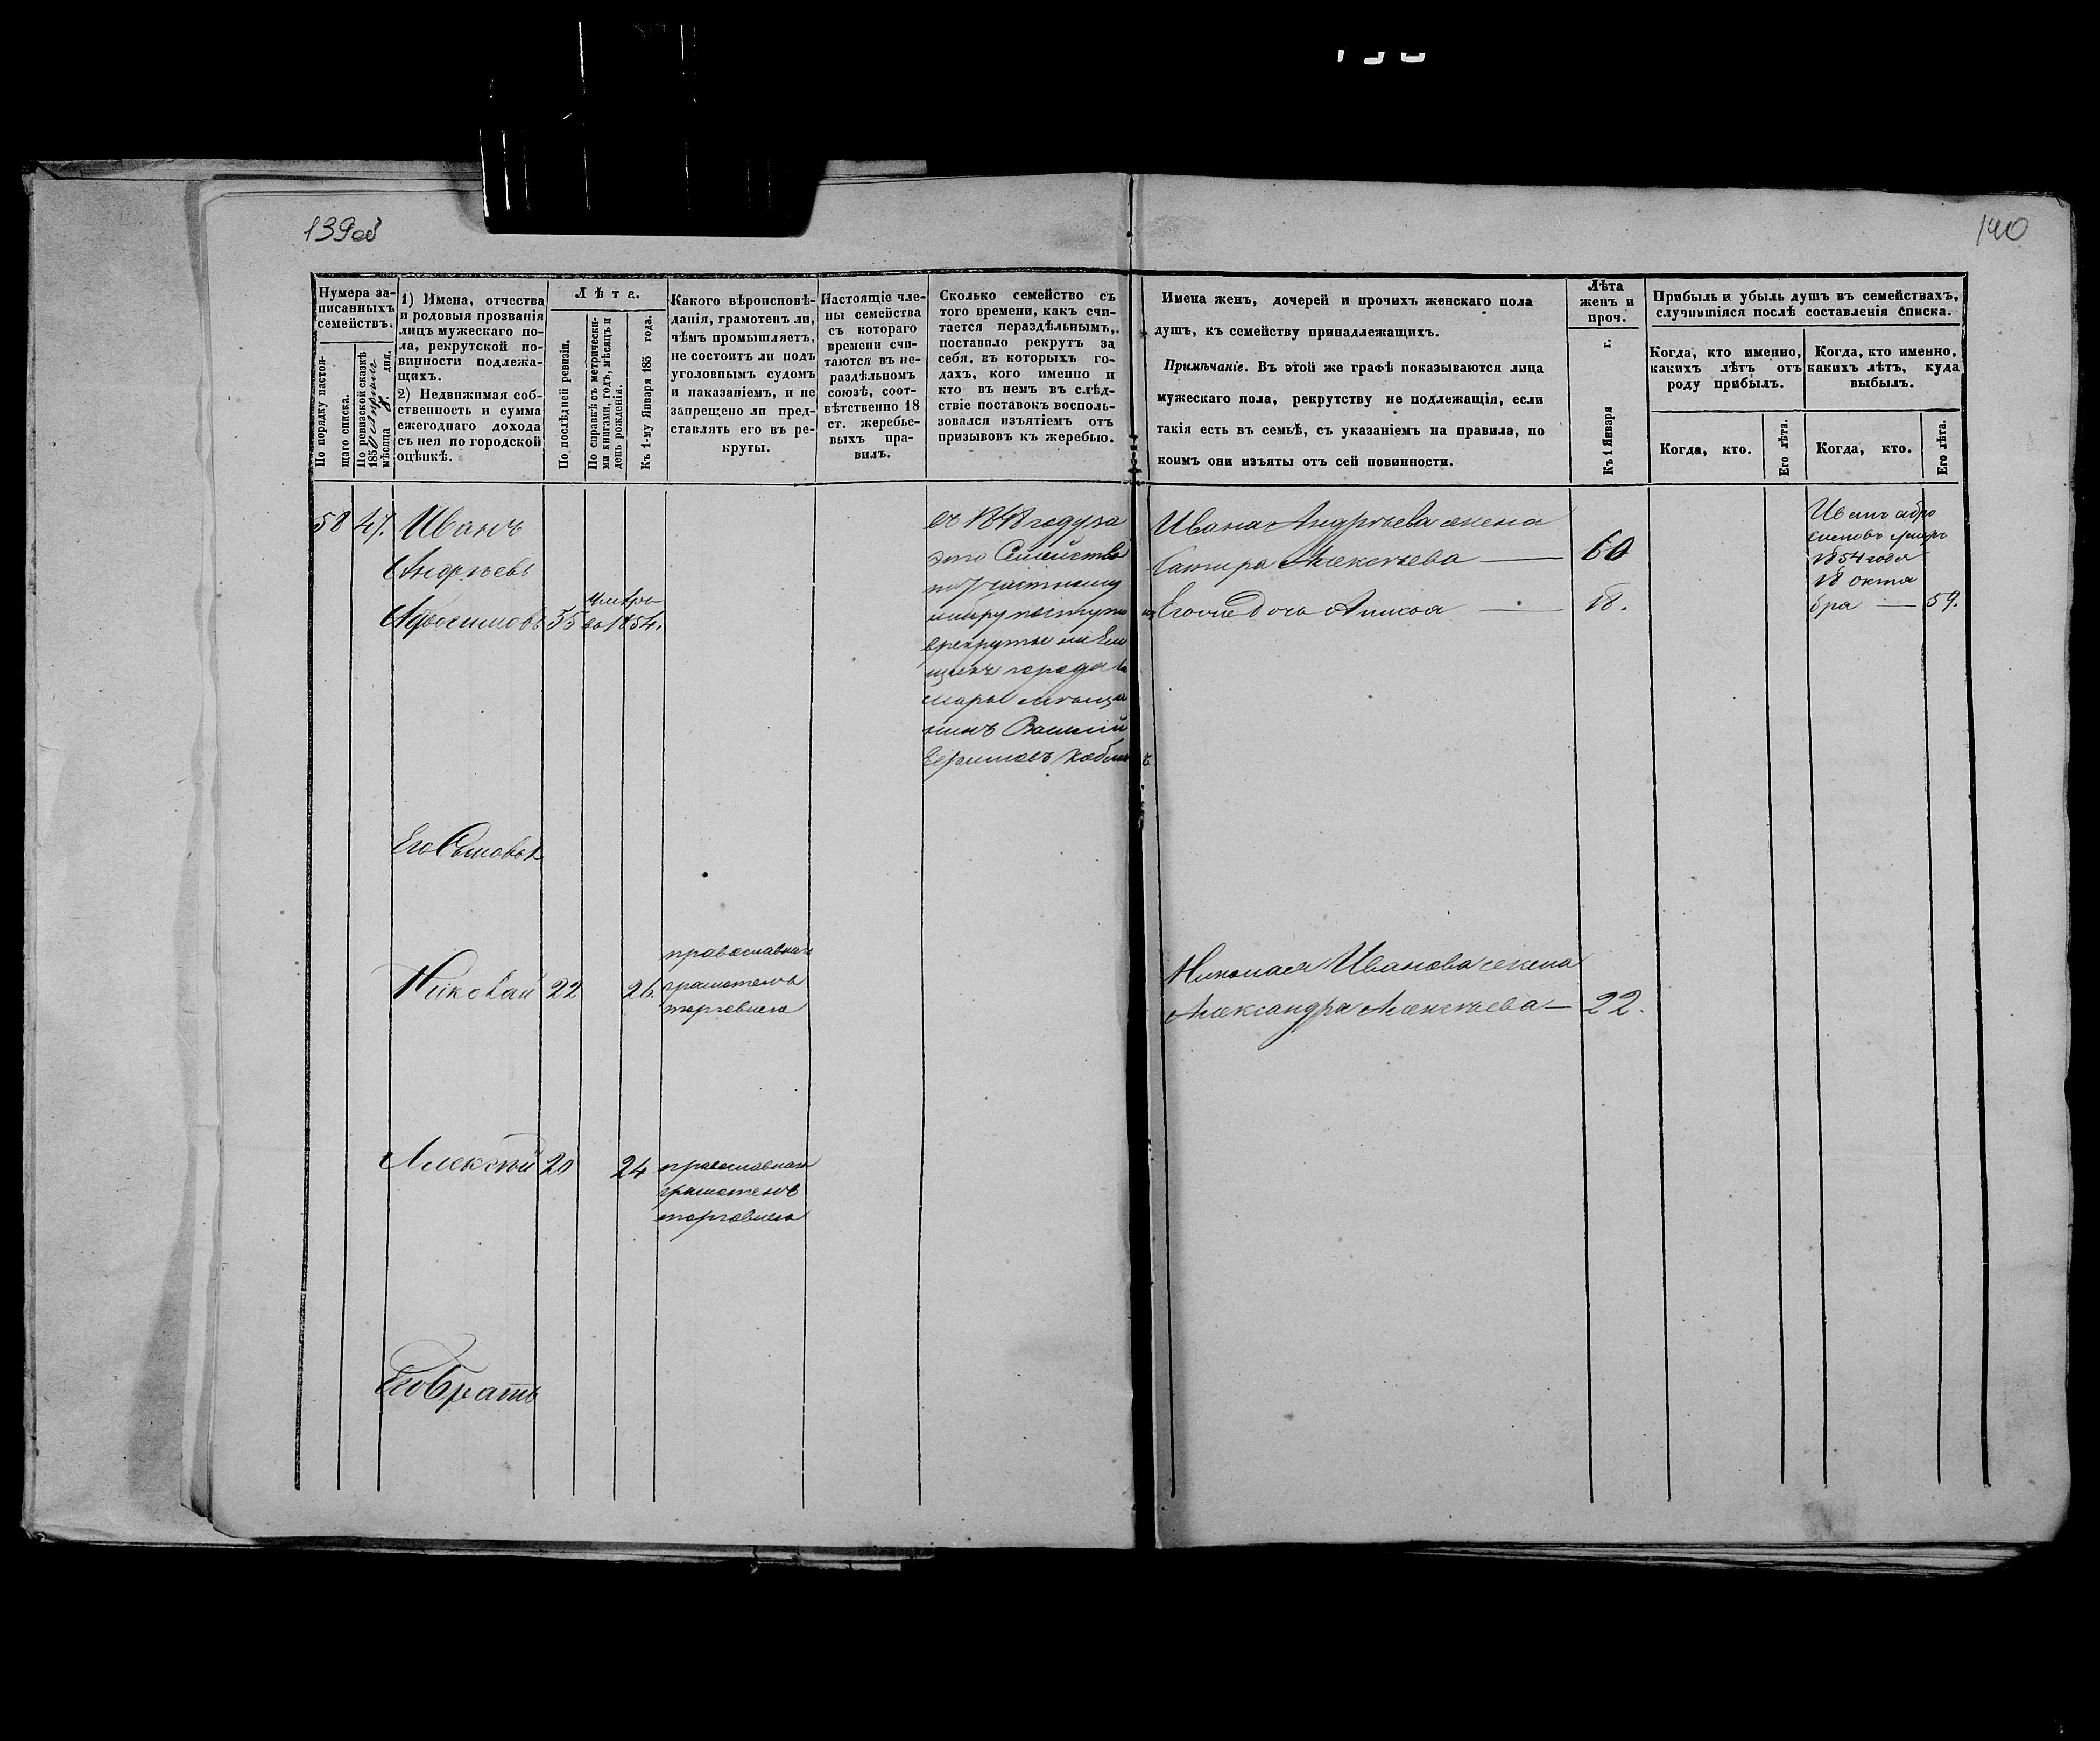 139об
140
Нумера за-
писанныхъ
семействъ.
По порядку настоя-
щаго списка.
По ревизской сказкѣ
1850
мѣсяца 8 дня.
1) Имена, отчества
и родовыя прозванія
лицъ мужескаго по-
ла, рекрутской по-
винности подлежа-
щихъ.
2) Недвижимая соб-
ственность и сумма
ежегоднаго дохода
съ нея по городской
оцѣнкѣ.
Лѣта.
По послѣдней ревизіи.
По справкѣ съ метрически-
ми книгами, годъ, мѣсяцъ и
день рожденія.
Къ 1-му Января 185 года.
Какого вѣроисповѣ-
данія, грамотенъ ли,
чѣмъ промышляетъ,
не состоитъ ли подъ
уголовнымъ судомъ
и наказаніемъ, и не
запрещено ли пред-
ставлять его въ ре-
круты.
Настоящіе чле-
ны семейства
съ котораго
времени счи-
таются въ не-
раздѣльномъ
союзѣ, соот-
вѣтственно 18
ст. жеребье-
выхъ пра-
вилъ.
Сколько семейство съ
того времени, какъ счи-
тается нераздѣльнымъ,
поставило рекрутъ за
себя, въ которыхъ го-
дахъ, кого именно и
кто въ немъ въ слѣд-
ствіе поставокъ восполь-
зовался изъятіемъ отъ
призывовъ къ жеребью.
Имена женъ, дочерей и прочихъ женскаго пола
душъ, къ семейству принадлежащихъ.
Примѣчаніе. Въ этой же графѣ показываются лица
мужескаго пола, рекрутству не подлежащія, если
такія есть въ семьѣ, съ указаніемъ на правила, по
коимъ они изъяты отъ сей повинности.
Лѣта
женъ и
проч.
Къ 1 Января г.
Прибыль и убыль душъ въ семействахъ,
случившіяся послѣ составленія списка.
Когда, кто именно,
какихъ лѣтъ отъ
роду прибылъ.
Когда, кто именно,
какихъ лѣтъ, куда
выбылъ.
Когда, кто.
Его лѣта.
Когда, кто.
Его лѣта.
58 47. Иванъ
Андрѣевъ
Абросимовъ 55 умеръ
въ 1854.
въ 1848 году за
это Семейство
по участному
поступилъ
въ рекруты
города Са
мары мѣща
нинъ Василий
Ивана Андрѣева жена
Алексѣева — 60
Егоже дочь Аписья — 18.
Иванъ абро
симовъ умеръ
1854 года
18 октя
бря — 59.
Его Сыновья
Николай 22 26.
православнаго
грамотенъ
торговлею
Николая Иванова жена
Александра Алексѣева — 22.
Алексѣй 20 24
православнаго
грамотенъ
торговлею
Его Братъ